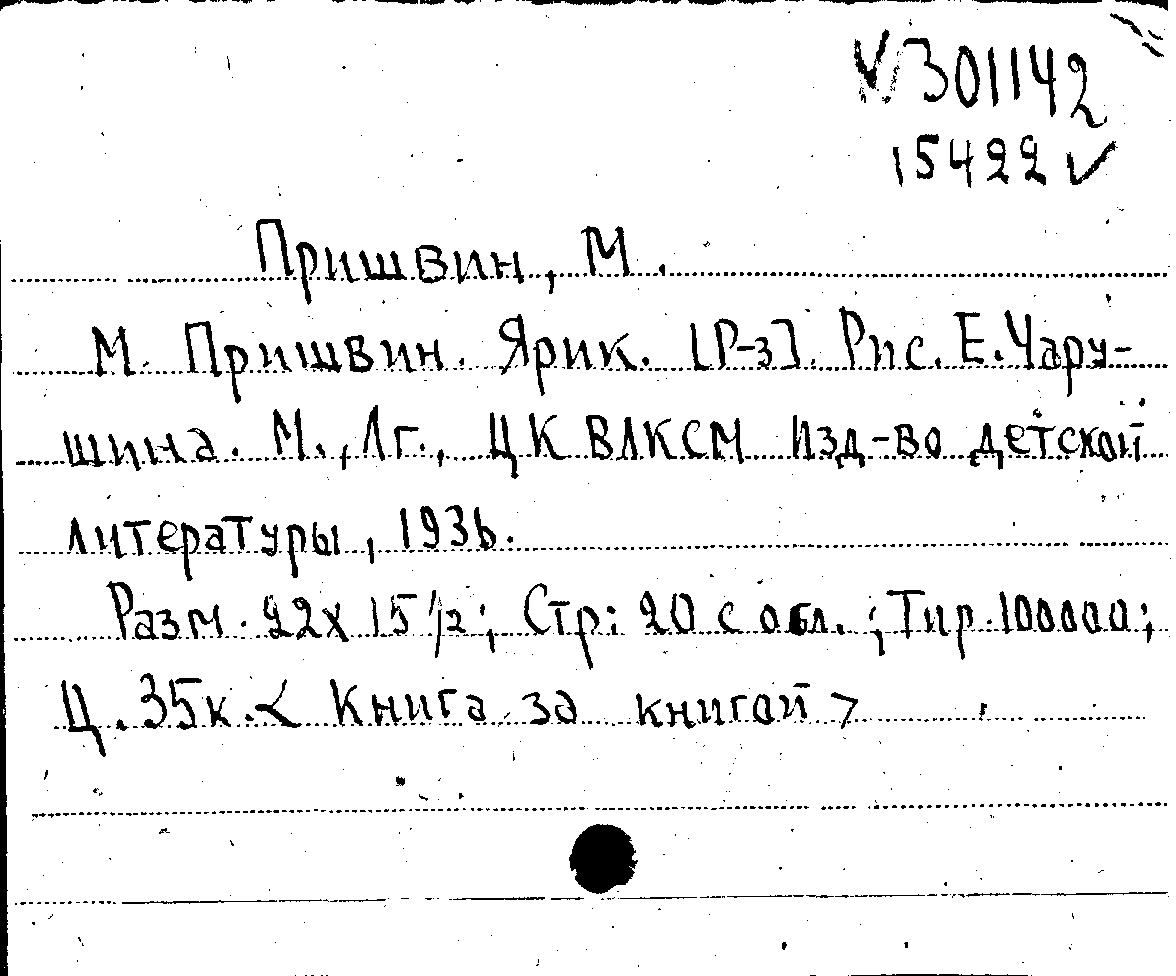 √301142
15422 ✓
Пришвин, М.
М. Пришвин. Ярик. [Р-з]. Рис. Е. Чару-
шина. М., Лг., ЦК ВЛКСМ Изд-во детской
литературы, 1936.
Разм. 22х15 1/2; Стр: 20 с обл.; Тир. 100000;
Ц. 35к. < Книга за книгой >